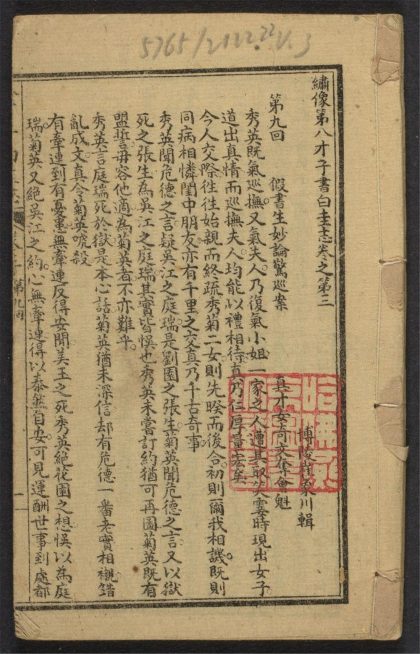 5765/2122.22 v.3
繡像第八才子書白圭志卷之第三
博陵崔象川輯
第九回 假書生妙論驚巡案
真才女奇文奪會魁
秀英既氣巡撫又氣夫人乃復氣小姐一家之人遭其取笑霎時現出女子
道出真情而巡撫夫人均能以禮相待真乃仁厚
今人交際往往始親而終疏秀菊二女則先暌而後合初則爾我相譏既則
同病相憐閨中朋友亦有千里之交真乃千古奇事
秀英聞危德之言疑吳江之庭瑞是劉園之張生菊英聞危德之言又以獄
死之張生為吳江之庭瑞其實皆悞也秀英未嘗訂約猶可再圖菊英既有
盟誓毋容他適為菊英者不亦難乎
秀英言庭瑞死於獄是本心話菊英猶未深信却有危德一番老實相襯錯
亂成文真令菊英唬殺
有牽連到有憂患無牽連反得安閒美玉之死秀英絕花園之想悞以為庭
瑞菊英又絕吳江之約心無牽連得以泰然自安可見運酬世事到處都
第九回